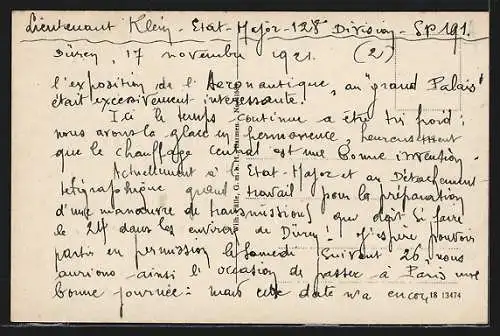 Lieutenant Klein - Etat-Major - 128 Division - SP 191.
Düren, 17 novembre 1921. (2)
l'exposition de l'Aéronautique, au "grand Palais"
était excessivement intéressante.
Ici le temps continue a être très froid;
nous avons la glace en permanence, heureusement
que le chauffage central est une bonne invention.
Actuellement à l'Etat-Major et au Détachement
télégraphique grand travail pour la préparation
d'une manœuvre de transmissions qui doit se faire
le 24 dans les environs de Düren! J'espère pouvoir
partir en permission le Samedi suivant 26, nous
aurions ainsi l'occasion de passer à Paris une
bonne journée: mais cette date n'a encore
18 13474